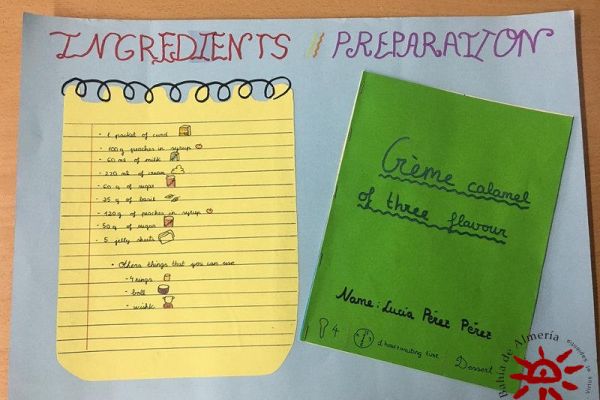 INGREDIENTS // PREPARATION
- 1 packet of curd
- 100 g peaches in syrup
- 60 ml of milk
- 220 ml of cream
- 60 g of sugar
- 25 g of basil
- 420 g of peaches in syrup
- 50 g of sugar
- 5 jelly sheets
• Others things that you can use
- 4 rings
- boll
- whisk
Crème calamel
of three flavour
Name: Lucía Pérez Pérez
4
Dessert
Bahía de Almería